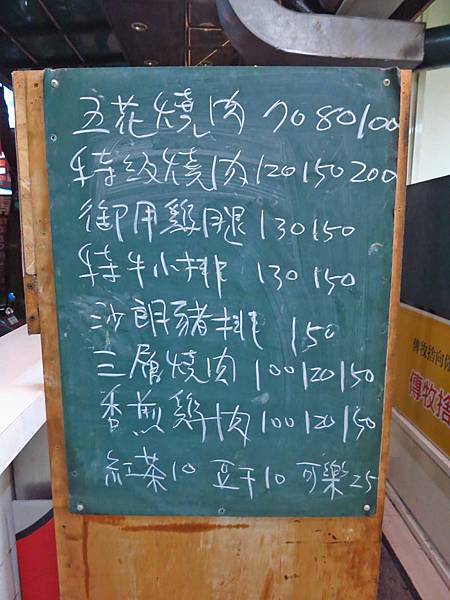 五花燒肉 70 80 100
特級燒肉 120 150 200
御用雞腿 130 150
特牛小排 130 150
沙朗豬排 150
三層燒肉 100 120 150
香煎雞肉 100 120 150
紅茶10 豆干10 可樂25
傳牧捨向
傳牧捨